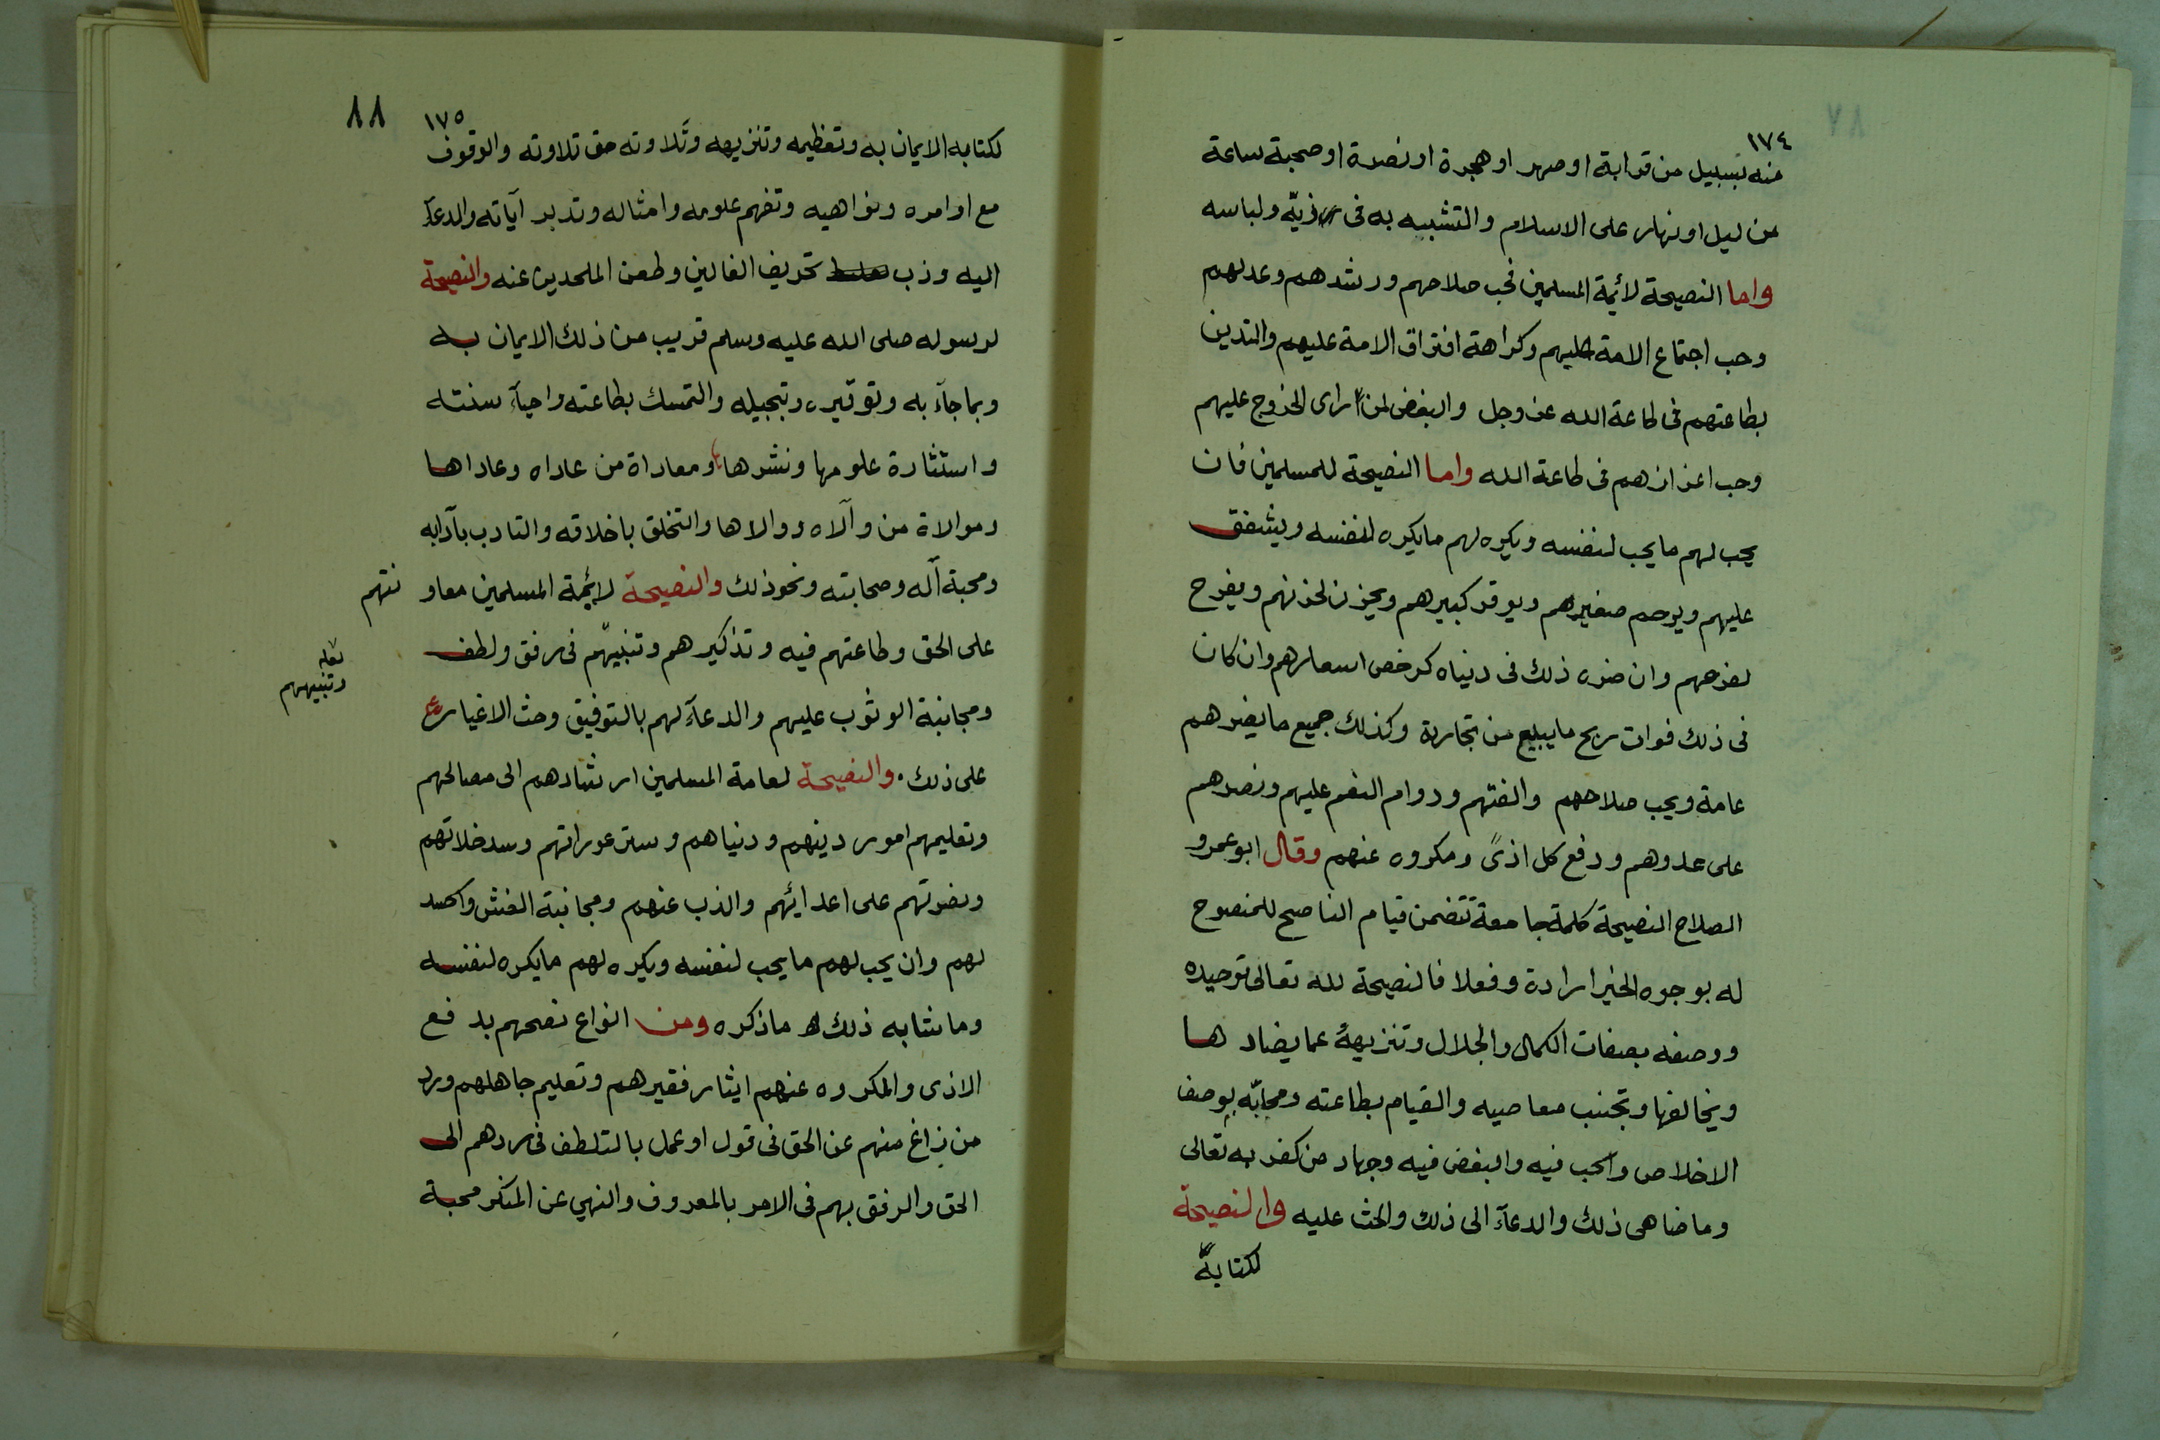 ١٧٤
منه بسبيل من قرابة او صهر او هجرة او نصرة او صحبة ساعة
من ليل او نهار على الاسلام والتشبيه به في زيّه ولباسه
واما النصيحة لائمة المسلمين فحب صلاحهم ورشدهم وعدلهم
وحب اجتماع الامة عليهم وكراهة افتراق الامة عليهم والتدين
بطاعتهم فى طاعة الله عز وجل والبغض لمن راى الخروج عليهم
وحب اعزازهم فى طاعة الله واما النصيحة للمسلمين فان
يحب لهم ما يحب لنفسه ويكره لهم ما يكره لنفسه ويشفق
عليهم ويرحم صغيرهم ويوقر كبيرهم ويحزن لحزنهم ويفرح
لفرحهم وان ضره ذلك فى دنياه كرخص اسعارهم وان كان
فى ذلك فوات ربح ما يبيع من تجارة وكذلك جميع ما يضرهم
عامة ويحب صلاحهم والفتهم ودوام النعم عليهم ونصرهم
على عدوهم ودفع كل اذىً ومكروه عنهم وقال ابو عمرو
الصلاح النصيحة كلمة جامعة تتضمن قيام الناصح للمنصوح
له بوجوه الخير ارادة وفعلا فالنصيحة لله تعالى توحيده
ووصفه بصفات الكمال والجلال وتنزيهه عما يضادها
ويخالفها وتجنب معاصيه والقيام بطاعته ومحابّه بوصف
الاخلاص والحب فيه والبغض فيه وجهاد من كفر به تعالى
وما ضاهى ذلك والدعآء الى ذلك والحث عليه والنصيحة
لكتابه
٨٨
١٧٥
لكتابه الايمان به وتعظيمه وتنزيهه وتلاوته حق تلاوته والوقوف
مع اوامره ونواهيه وتفهم علومه وامثاله وتدبر آياته والدعآء
اليه وذب تحريف الغالين وطعن الملحدين عنه والنصيحة
لرسوله صلى الله عليه وسلم قريب من ذلك الايمان به
وبما جآء به وتوقيره وتبجيله والتمسك بطاعته واحيآء سنته
واستثارة علومها ونشرها ومعاداة من عاداه وعاداها
وموالاة من والاه ووالاها والتخلق باخلاقه والتادب بآدابه
ومحبة آله وصحابته ونحو ذلك والنصيحة لائمة المسلمين معاو نتهم
على الحق وطاعتهم فيه وتذكيرهم وتنبيهم فى رفق ولطف
لعله
وتنبيههم
ومجانبة الوثوب عليهم والدعآء لهم بالتوفيق وحث الاغيار
على ذلك . والنصيحة لعامة المسلمين ارشادهم الى مصالحهم
وتعليمهم امور دينهم ودنياهم وستر عوراتهم وسد خلاتهم
ونصرتهم على اعدائهم والذب عنهم ومجانبة الغش والحسد
لهم وان يحب لهم ما يحب لنفسه ويكره لهم ما يكره لنفسه
وما شابه ذلك ما ذكره ومن انواع نصحهم بدفع
الاذى والمكروه عنهم ايثار فقيرهم وتعليم جاهلهم ورد
من زاغ منهم عن الحق فى قول او عمل بالتلطف فى ردهم الى
الحق والرفق بهم فى الامر بالمعروف والنهي عن المنكر محبة